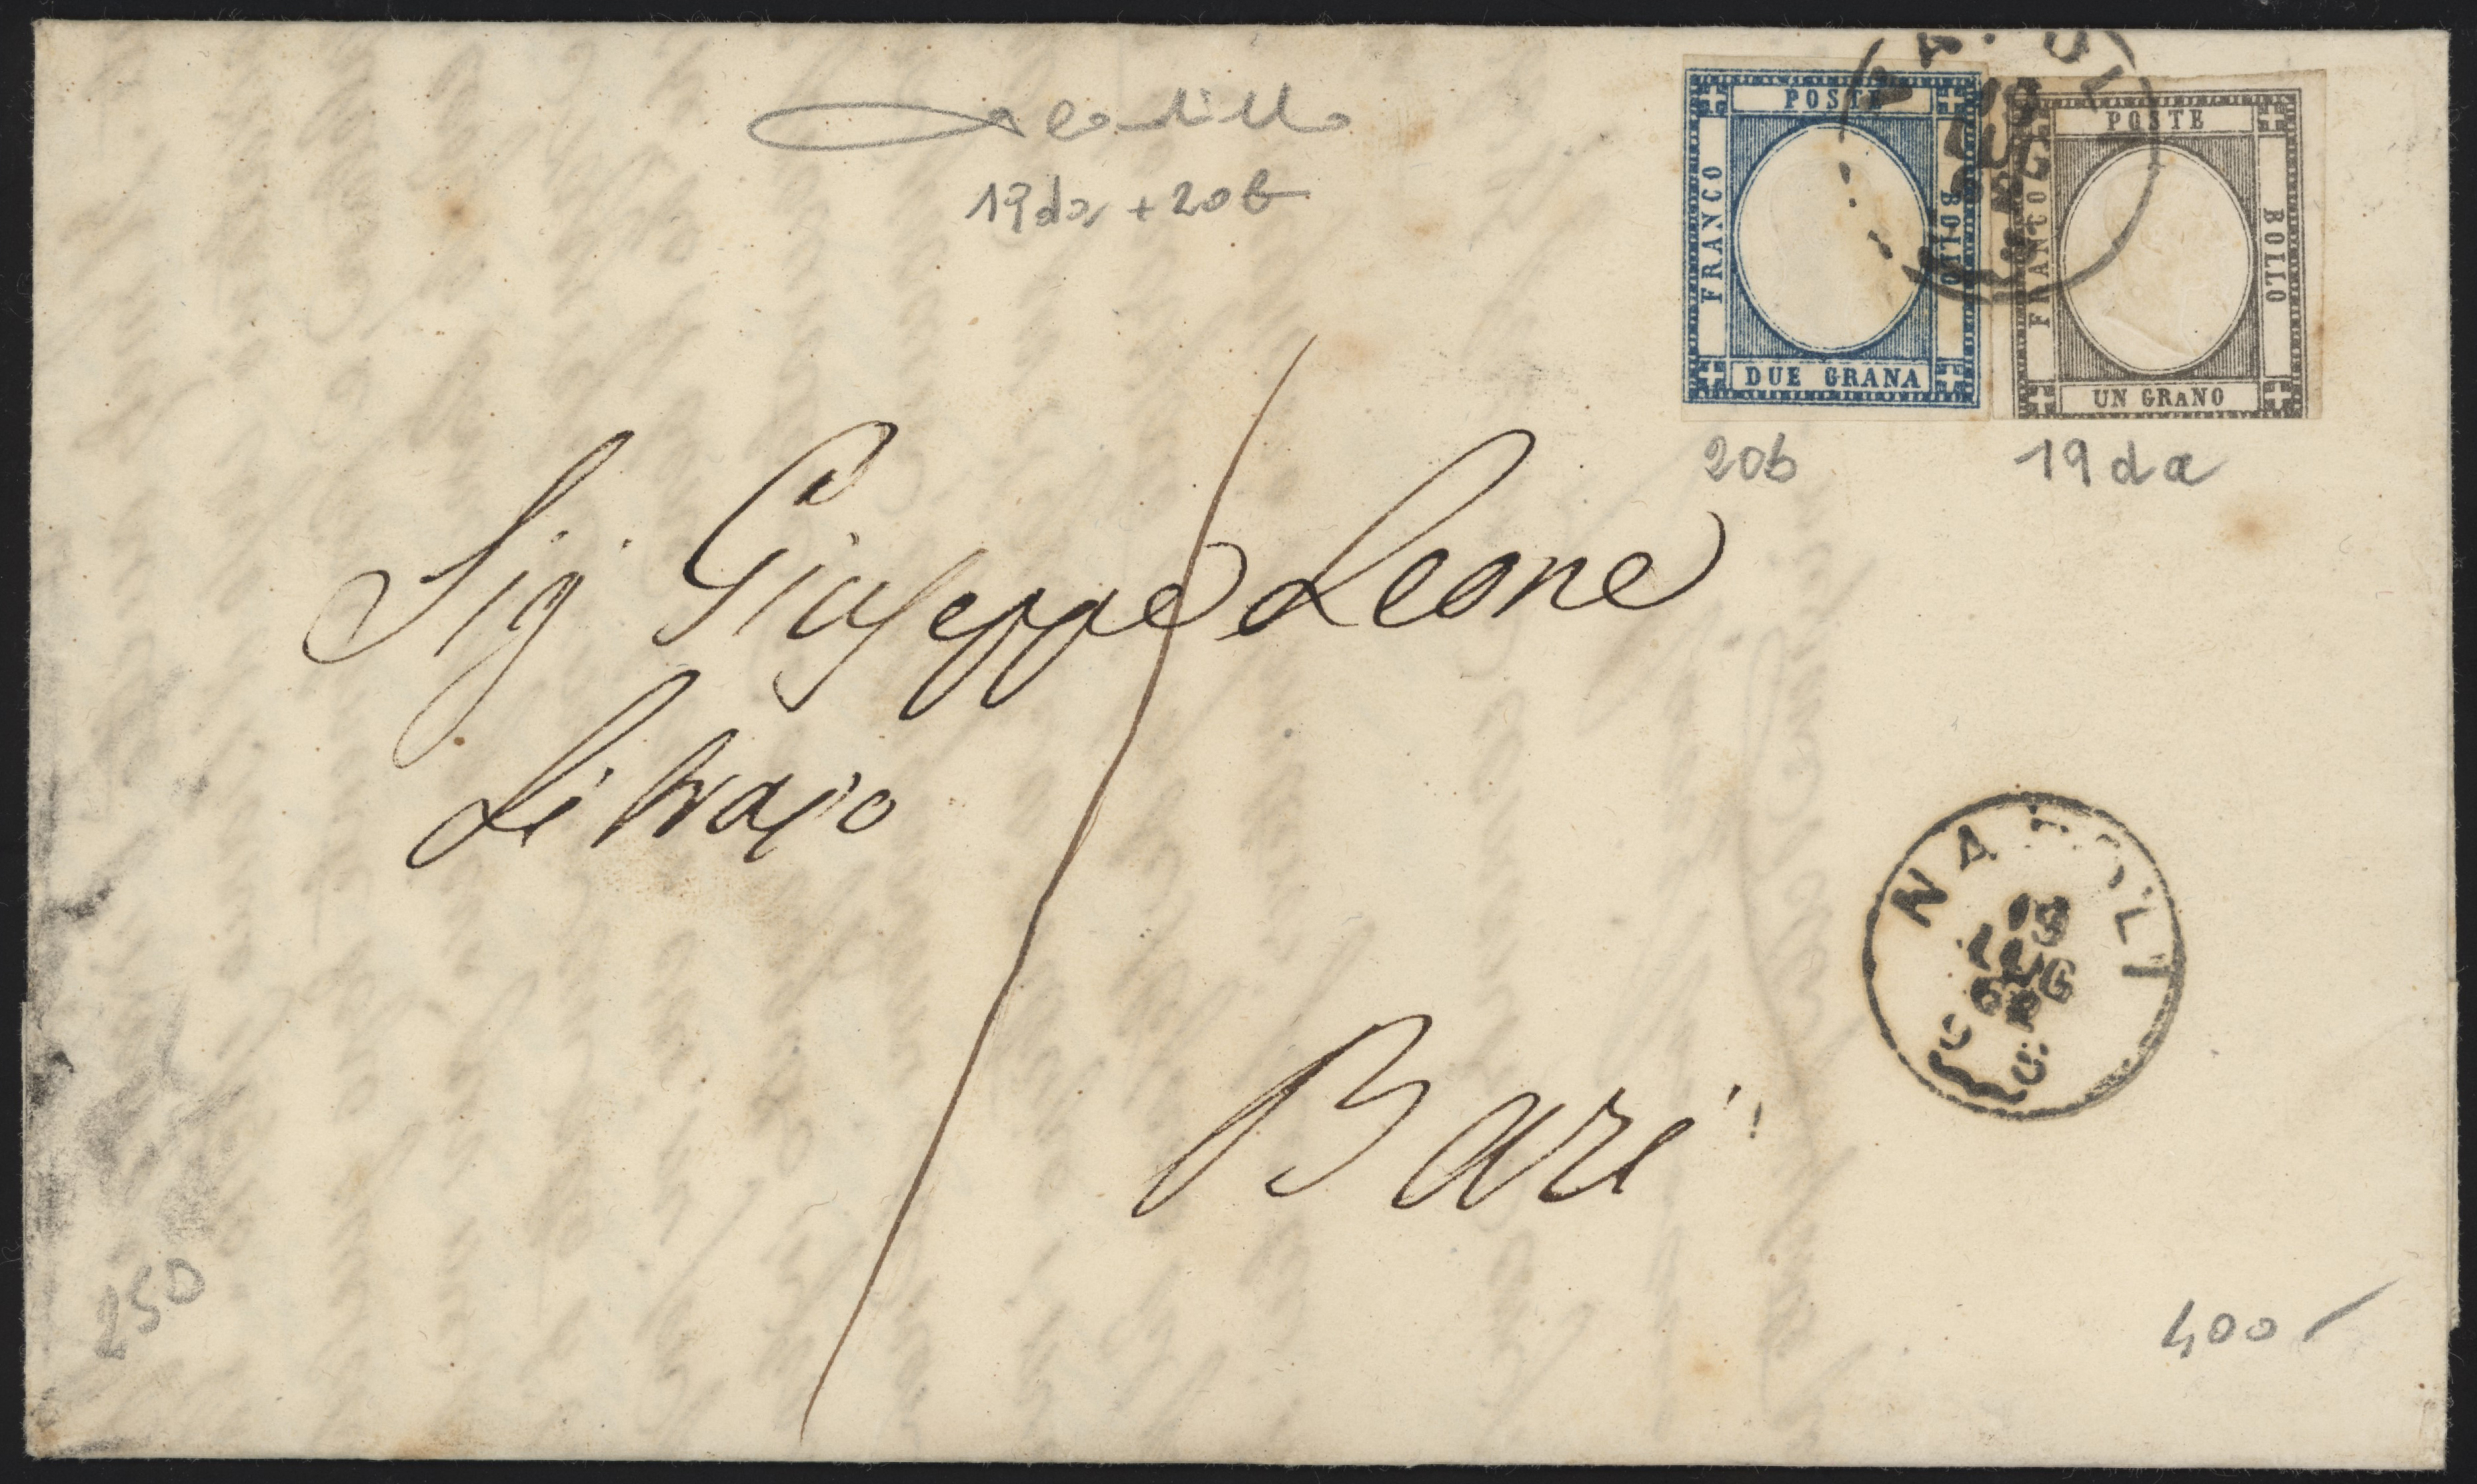 19da + 20b
POSTE
FRANCO
BOLLO
DUE GRANA
POSTE
FRANCO
BOLLO
UN GRANO
20b
19da
Sig. Giuseppe Leone
Librajo
Bari
NAPOLI
LUG
250
400